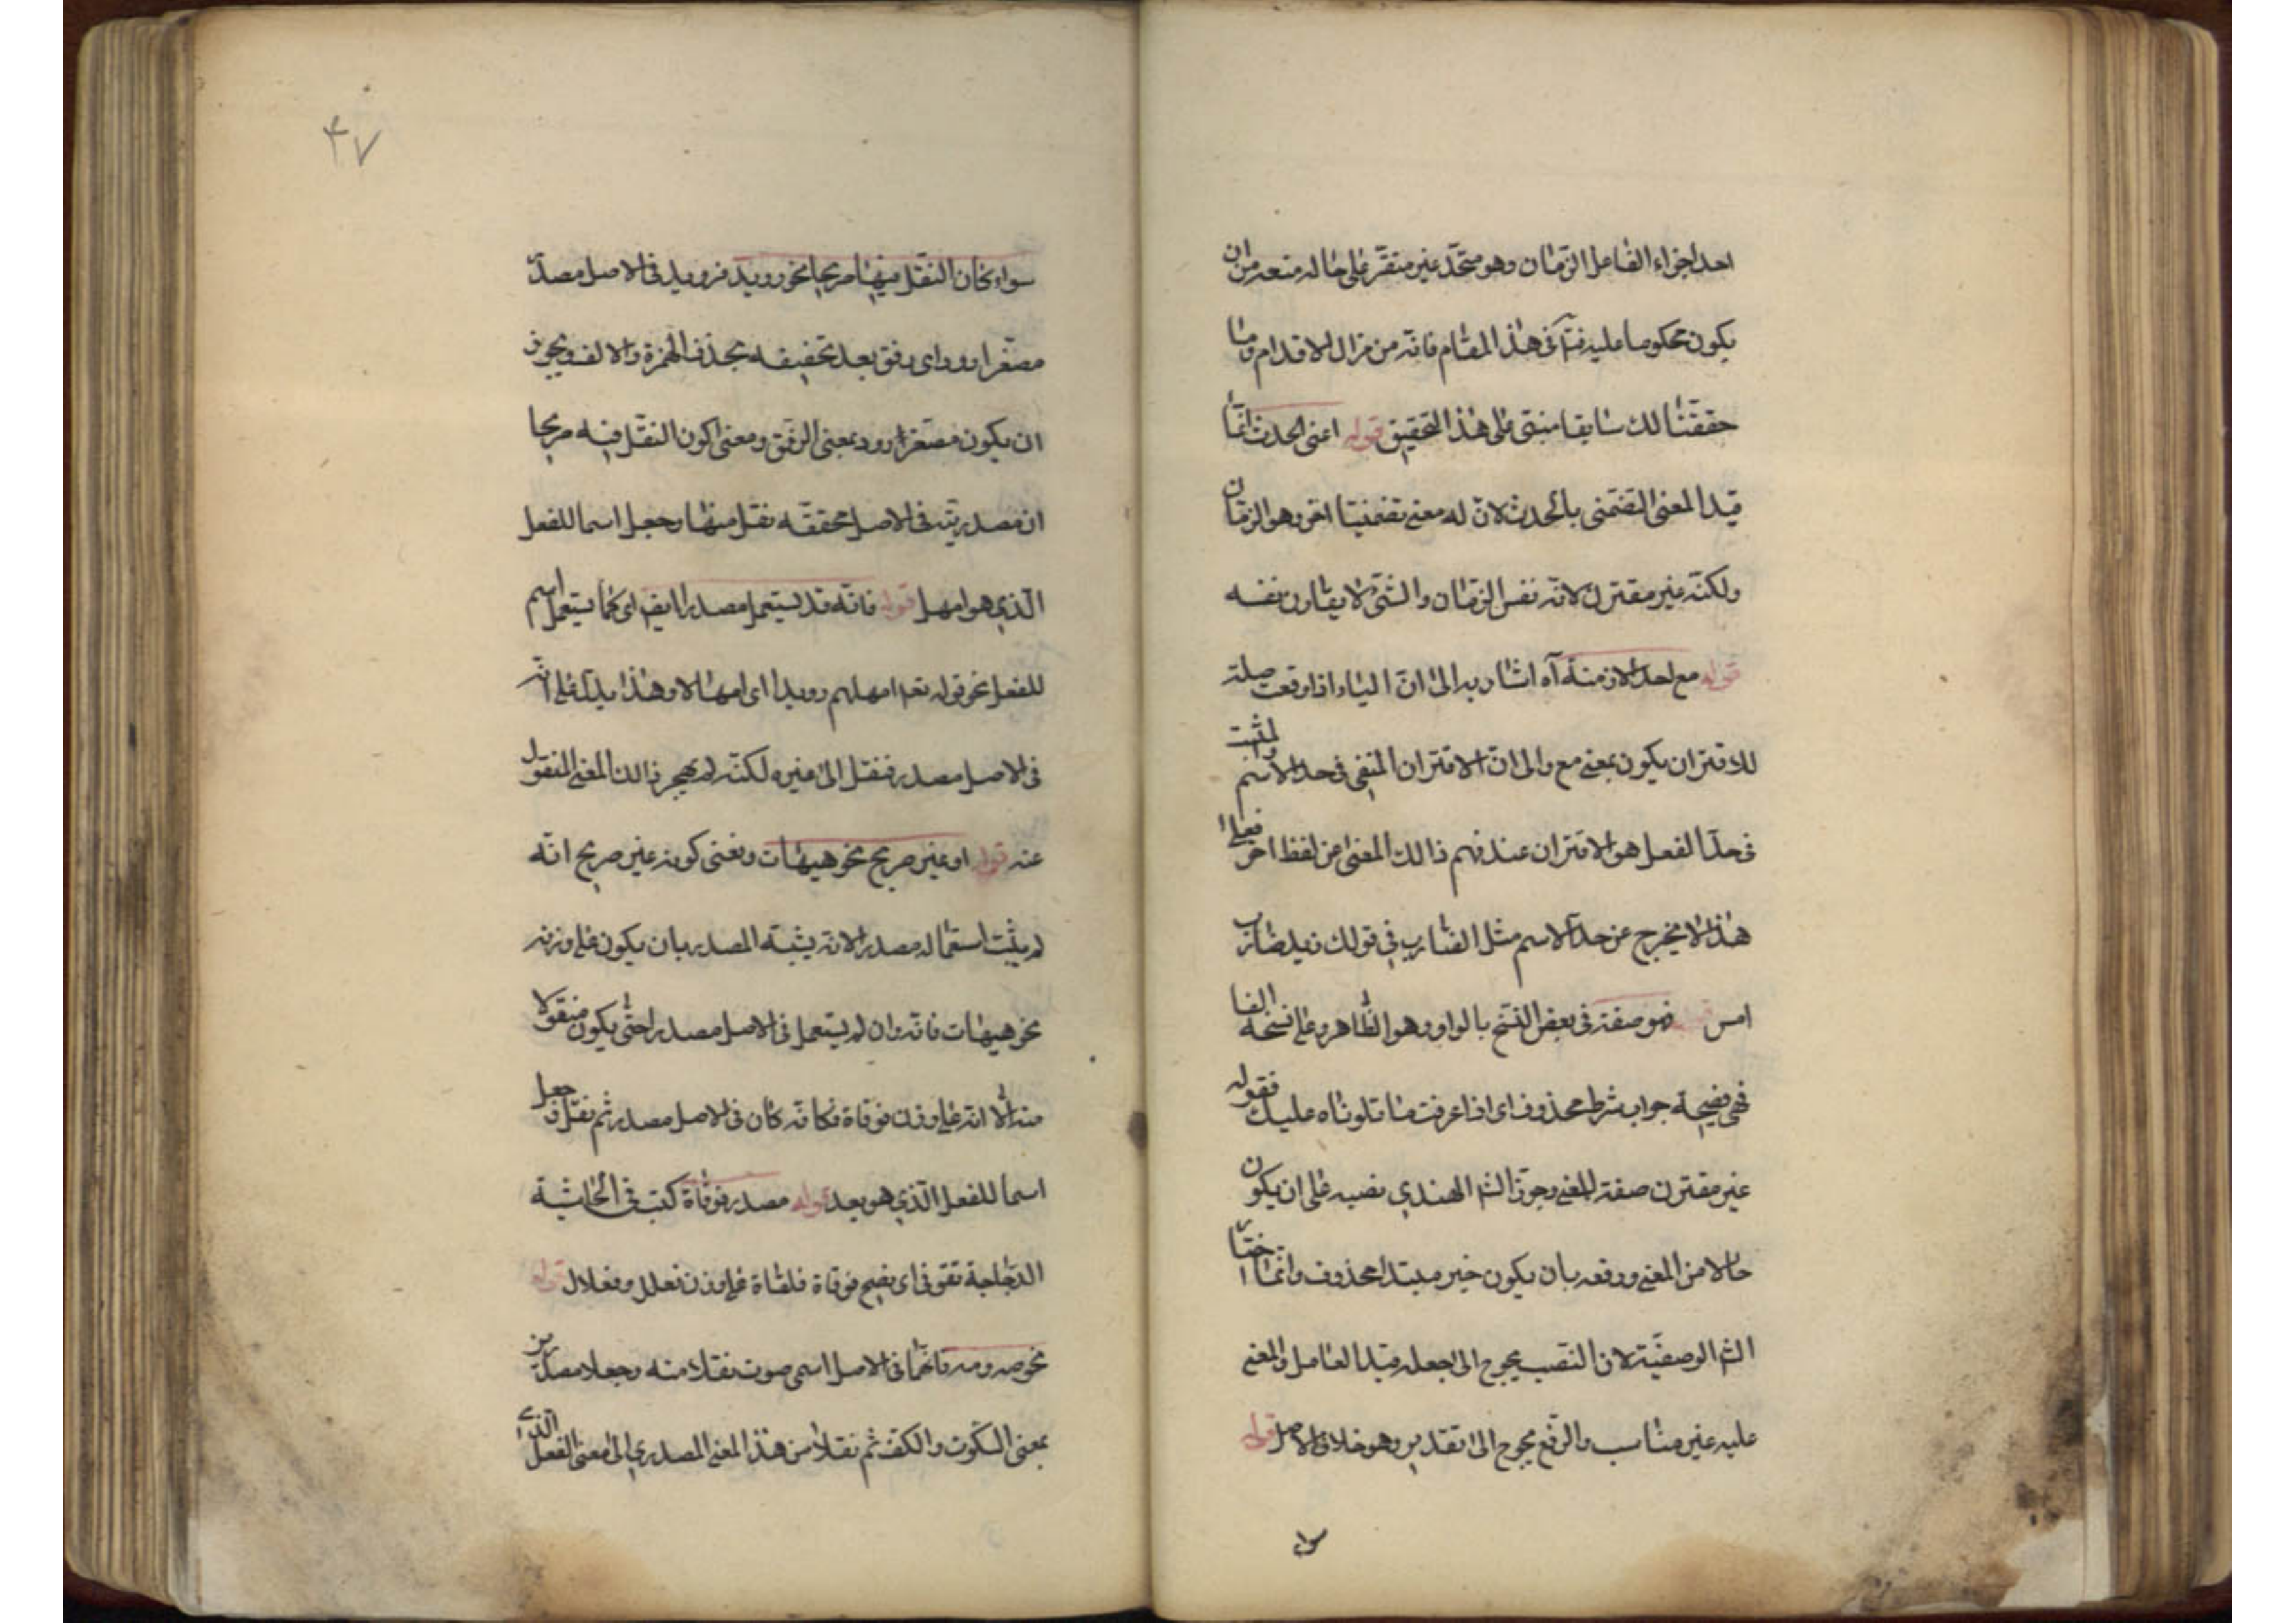 احد اجزاء الفاعل الزمان وهو متجدد غير متقرر على حاله متعه من ان
يكون محكوما عليه فتا فى هذا المقام فانه من مزال الاقدام وما
حققنا لك سابقا مبتنى على هذا التحقيق قوله اعنى الحدث انما
قيد المعنى التضمنى بالحدث لان له معنى تضمنيا اخر وهو الزمان
ولكنه غير مقترن لانه نفس الزمان والشئ لا يقارن نفسه
قوله مع احد الازمنة آه اشار به الى ان الباء اذا وقعت صلة
للاقتران يكون بمعنى مع والى ان الاقتران المنفى فى حد الاسم والمثبت
فى حد الفعل هو الاقتران عند فهم ذالك المعنى من لفظ اخر فعلى
هذا لا يخرج عن حد الاسم مثل الضارب فى قولك زيد ضارب
امس قوله فهو صفة فى بعض النسخ بالواو وهو الظاهر وعلى نسخة الفا
فهى فصيحة جواب شرط محذوف اى اذا عرفت ما تلوناه عليك فقوله
غير مقترن صفة للمعنى وجوز الش الهندي نصبه على ان يكون
حالا من المعنى ورفعه بان يكون خبر مبتدا محذوف وانما اختار
الش الوصفية لان النصب يحوج الى جعله قيدا لعامل والمعنى
عليه غير مناسب والرفع يحوج الى تقدير وهو خلاف الاصل قوله
سواء
٤٧
سواء كان النقل منها صريحا نحو رويد فرويد فى الاصل مصدر
مصغر ارود اى رفق بعد تخفيفه بحذف الهمزة والالف ويجوز
ان يكون مصغر ارود بمعنى الرفق ومعنى كون النقل فيه صريحا
ان مصدريته فى الاصل محققه نقل منها وجعل اسما للفعل
الذي هو امهل قوله فانه قد يستعمل مصدرا ايض اى كما يستعمل اسم
للفعل نحو قوله تعم امهلهم رويدا اى امهالا وهذا يدل على انه
فى الاصل مصدر فنقل الى غيره لكنه لم يهجر ذالك المعنى المنقول
عنه قوله او غير صريح نحو هيهات ومعنى كونه غير صريح انه
لم يثبت استعماله مصدرا لانه يشبه المصدر بان يكون على وزنه
نحو هيهات فانه وان لم يستعمل فى الاصل مصدرا حتى يكون منقولا
منه الا انه على وزن قوقاة فكانه كان فى الاصل مصدر ثم نقل فجعل
اسما للفعل الذي هو بعد قوله مصدر قوقاة كتب فى الحاشية
الدجاجة تقوقى اى تصيح قوقاة قلقاة على وزن فعلل وفعلال قوله
نحو صه ومه فانهما فى الاصل اسمى صوت نقلا منه وجعلا مصدرين
بمعنى السكوت والكف ثم نقلا من هذا المعنى المصدري الى معنى الفعل الذي